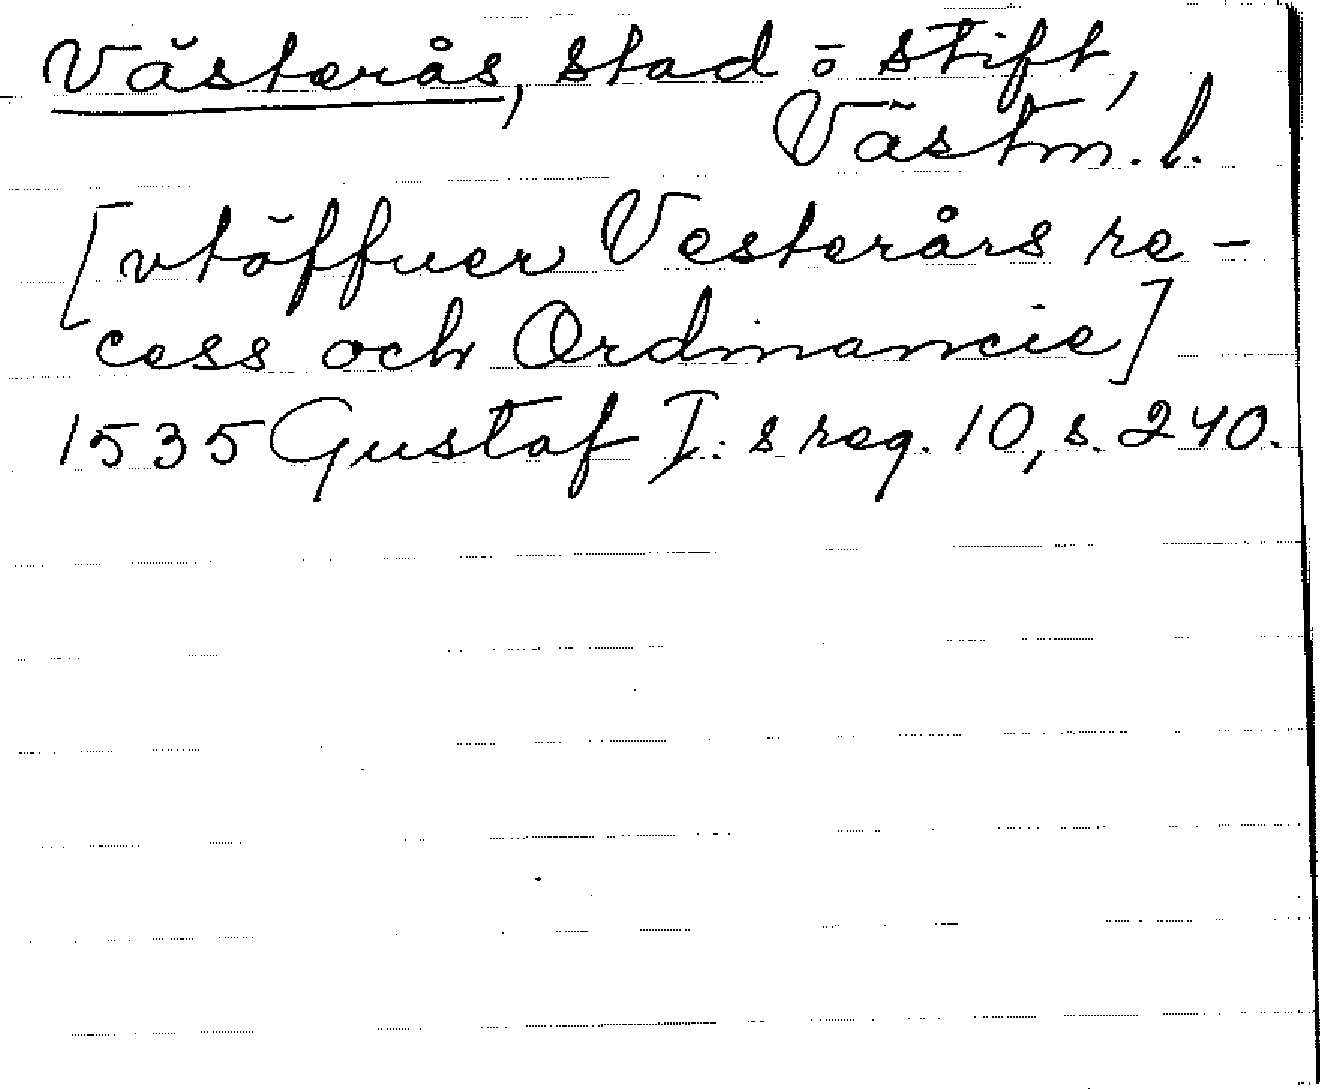 Västerås, stad o stift,
Västm. l.
[vtöffuer Vesterårs re-
cess och Ordinancie]
1535 Gustaf I:s reg. 10, s. 240.